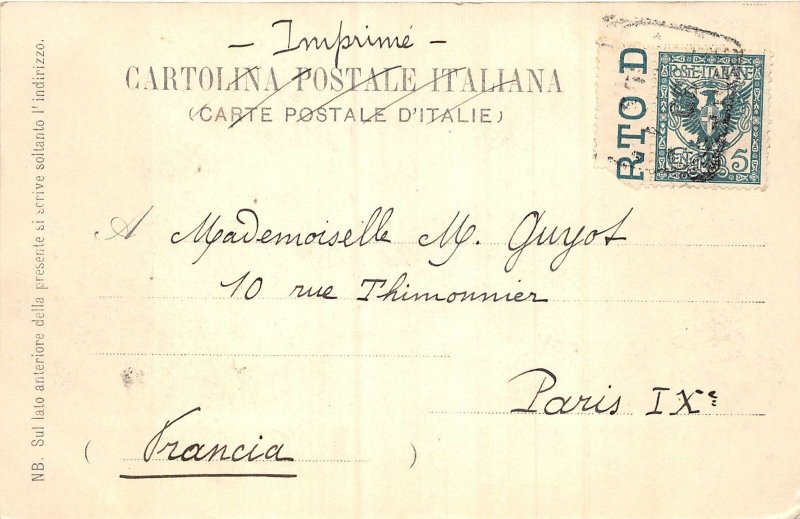 — Imprimé —
CARTOLINA POSTALE ITALIANA
(CARTE POSTALE D'ITALIE)
RTO D
POSTE·ITALIANE
CENT. 5
A Mademoiselle M. Guyot
10 rue Thimonnier
Paris IXe
(Francia)
NB. Sul lato anteriore della presente si scrive soltanto l'indirizzo.